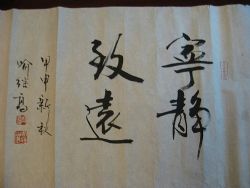 寧靜
致遠
甲申新秋
喻继高